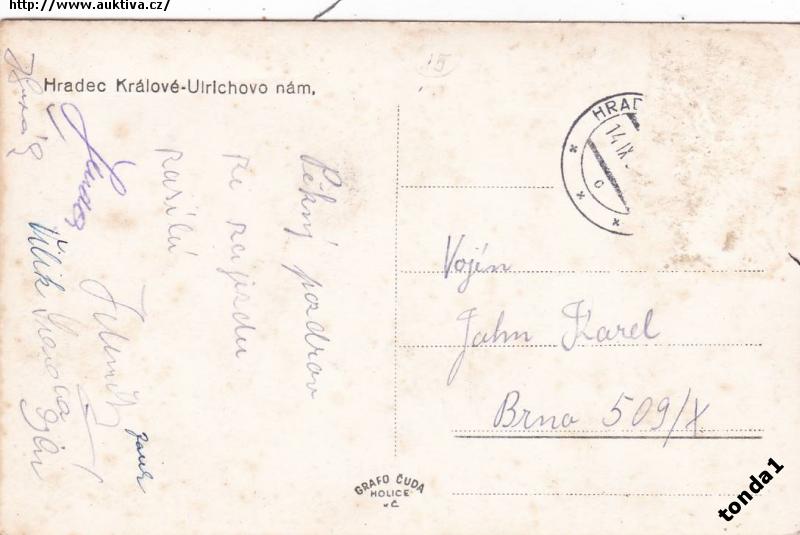 http://www.auktiva.cz/
Hradec Králové-Ulrichovo nám,
15
HRAD
14.IX.
Pěkný pozdrav
ze zájezdu
zasílá
Vilík
Vojín
Jahn Karel
Brno 509/X
GRAFO ČUDA
HOLICE
v Č
tonda1